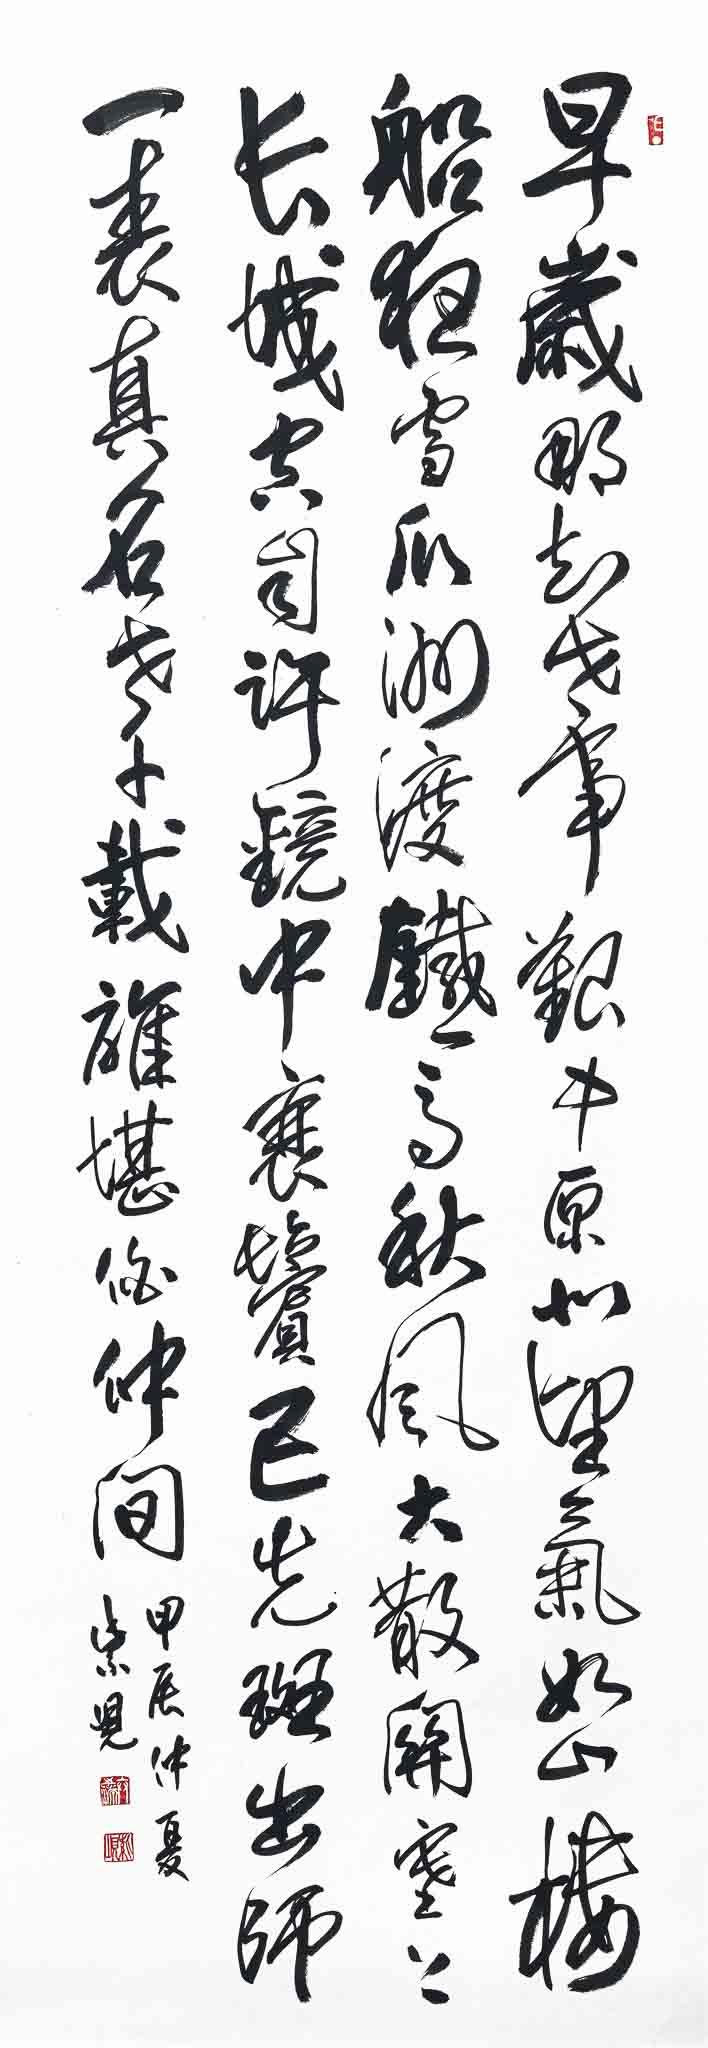 早歲那知世事艱中原北望氣如山樓
船夜雪瓜洲渡鐵馬秋風大散關塞上
长城空自許鏡中衰鬢已先斑出師
一表真名世千載誰堪伯仲間
甲辰仲夏